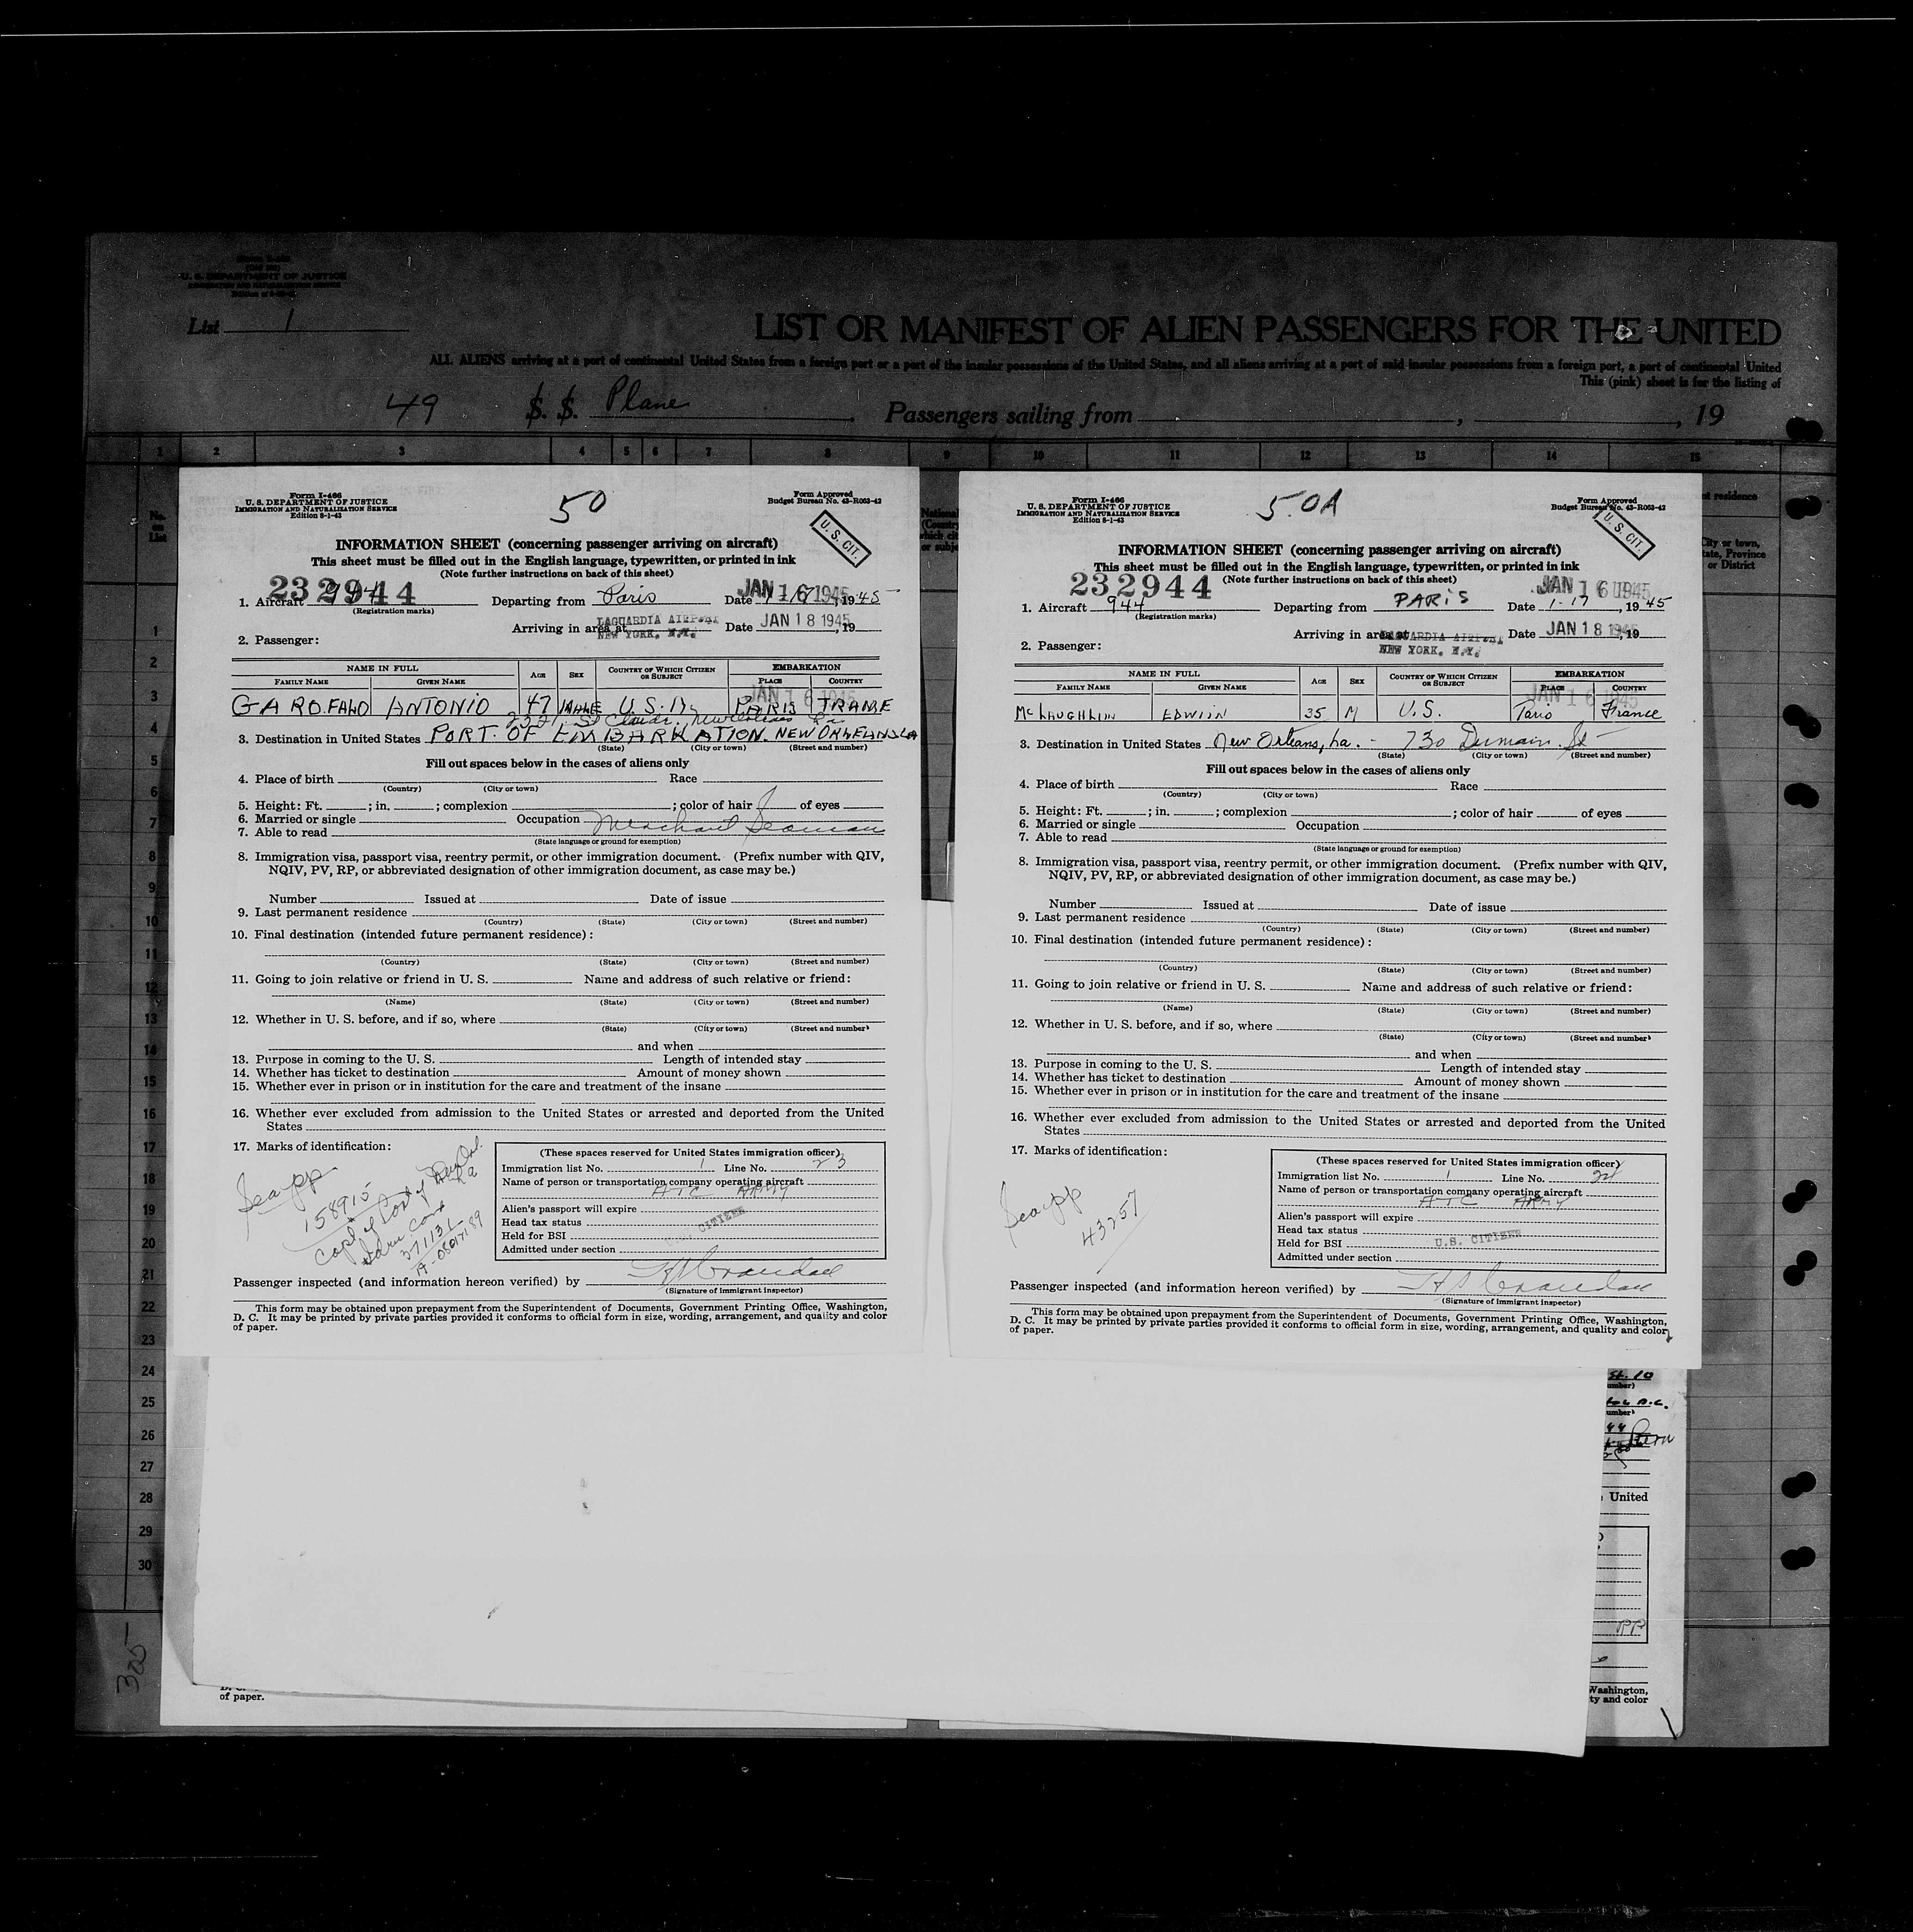 U. S. DEPARTMENT OF JUSTICE
List 1
LIST OR MANIFEST OF ALIEN PASSENGERS FOR THE UNITED
ALL ALIENS arriving at a port of continental United States from a foreign port or a port of the insular possessions of the United States, and all aliens arriving at a port of said insular possessions from a foreign port, a port of continental United
This (pink) sheet is for the listing of
49 S. S. Plane , Passengers sailing from , , 19
1 2 3 4 5 6 7 8 9 10 11 12 13 14 15
No. on List
Form I-466
U. S. DEPARTMENT OF JUSTICE
IMMIGRATION AND NATURALIZATION SERVICE
Edition 8-1-43
50
Form Approved
Budget Bureau No. 43-R063-42
U. S. CIT.
INFORMATION SHEET (concerning passenger arriving on aircraft)
This sheet must be filled out in the English language, typewritten, or printed in ink
(Note further instructions on back of this sheet)
232944
JAN 16 1945
1. Aircraft 944 Departing from Paris Date 1-17, 1945
(Registration marks)
Arriving in area at LAGUARDIA AIRPORT NEW YORK, N.Y. Date JAN 18 1945, 19
2. Passenger:
NAME IN FULL AGE SEX COUNTRY OF WHICH CITIZEN OR SUBJECT EMBARKATION
FAMILY NAME GIVEN NAME PLACE COUNTRY
JAN 16 1945
GAROFALO ANTONIO 47 MALE U.S. PARIS FRANCE
2521 St Claude. New Orleans La
3. Destination in United States PORT OF EMBARKATION. NEW ORLEANS LA
(State) (City or town) (Street and number)
Fill out spaces below in the cases of aliens only
4. Place of birth Race
(Country) (City or town)
5. Height: Ft. ; in. ; complexion ; color of hair of eyes
6. Married or single Occupation Merchant Seaman
7. Able to read
(State language or ground for exemption)
8. Immigration visa, passport visa, reentry permit, or other immigration document. (Prefix number with QIV,
NQIV, PV, RP, or abbreviated designation of other immigration document, as case may be.)
Number Issued at Date of issue
9. Last permanent residence
(Country) (State) (City or town) (Street and number)
10. Final destination (intended future permanent residence):
(Country) (State) (City or town) (Street and number)
11. Going to join relative or friend in U. S. Name and address of such relative or friend:
(Name) (State) (City or town) (Street and number)
12. Whether in U. S. before, and if so, where
(State) (City or town) (Street and number)
and when
13. Purpose in coming to the U. S. Length of intended stay
14. Whether has ticket to destination Amount of money shown
15. Whether ever in prison or in institution for the care and treatment of the insane
16. Whether ever excluded from admission to the United States or arrested and deported from the United
States
17. Marks of identification:
Sea pp
158915
Capt of Port
(These spaces reserved for United States immigration officer)
Immigration list No. 1 Line No. 23
Name of person or transportation company operating aircraft
ATC ARMY
Alien's passport will expire
Head tax status
Held for BSI U.S. CITIZEN
Admitted under section
Passenger inspected (and information hereon verified) by Crandall
(Signature of immigrant inspector)
This form may be obtained upon prepayment from the Superintendent of Documents, Government Printing Office, Washington,
D. C. It may be printed by private parties provided it conforms to official form in size, wording, arrangement, and quality and color
of paper.
Form I-466
U. S. DEPARTMENT OF JUSTICE
IMMIGRATION AND NATURALIZATION SERVICE
Edition 8-1-43
50A
Form Approved
Budget Bureau No. 43-R063-42
U. S. CIT.
INFORMATION SHEET (concerning passenger arriving on aircraft)
This sheet must be filled out in the English language, typewritten, or printed in ink
(Note further instructions on back of this sheet)
232944
JAN 16 1945
1. Aircraft 944 Departing from PARIS Date 1-17, 1945
(Registration marks)
Arriving in area at LAGUARDIA AIRPORT NEW YORK, N.Y. Date JAN 18 1945, 19
2. Passenger:
NAME IN FULL AGE SEX COUNTRY OF WHICH CITIZEN OR SUBJECT EMBARKATION
FAMILY NAME GIVEN NAME PLACE COUNTRY
JAN 16 1945
McLAUGHLIN EDWIN 35 M U.S. Paris France
3. Destination in United States New Orleans, La. - 730 Dumain St
(State) (City or town) (Street and number)
Fill out spaces below in the cases of aliens only
4. Place of birth Race
(Country) (City or town)
5. Height: Ft. ; in. ; complexion ; color of hair of eyes
6. Married or single Occupation
7. Able to read
(State language or ground for exemption)
8. Immigration visa, passport visa, reentry permit, or other immigration document. (Prefix number with QIV,
NQIV, PV, RP, or abbreviated designation of other immigration document, as case may be.)
Number Issued at Date of issue
9. Last permanent residence
(Country) (State) (City or town) (Street and number)
10. Final destination (intended future permanent residence):
(Country) (State) (City or town) (Street and number)
11. Going to join relative or friend in U. S. Name and address of such relative or friend:
(Name) (State) (City or town) (Street and number)
12. Whether in U. S. before, and if so, where
(State) (City or town) (Street and number)
and when
13. Purpose in coming to the U. S. Length of intended stay
14. Whether has ticket to destination Amount of money shown
15. Whether ever in prison or in institution for the care and treatment of the insane
16. Whether ever excluded from admission to the United States or arrested and deported from the United
States
17. Marks of identification:
Sea pp
43257
(These spaces reserved for United States immigration officer)
Immigration list No. 1 Line No. 24
Name of person or transportation company operating aircraft
ATC ARMY
Alien's passport will expire
Head tax status
Held for BSI U.S. CITIZEN
Admitted under section
Passenger inspected (and information hereon verified) by Crandall
(Signature of immigrant inspector)
This form may be obtained upon prepayment from the Superintendent of Documents, Government Printing Office, Washington,
D. C. It may be printed by private parties provided it conforms to official form in size, wording, arrangement, and quality and color
of paper.
United
Washington,
ty and color
of paper.
305